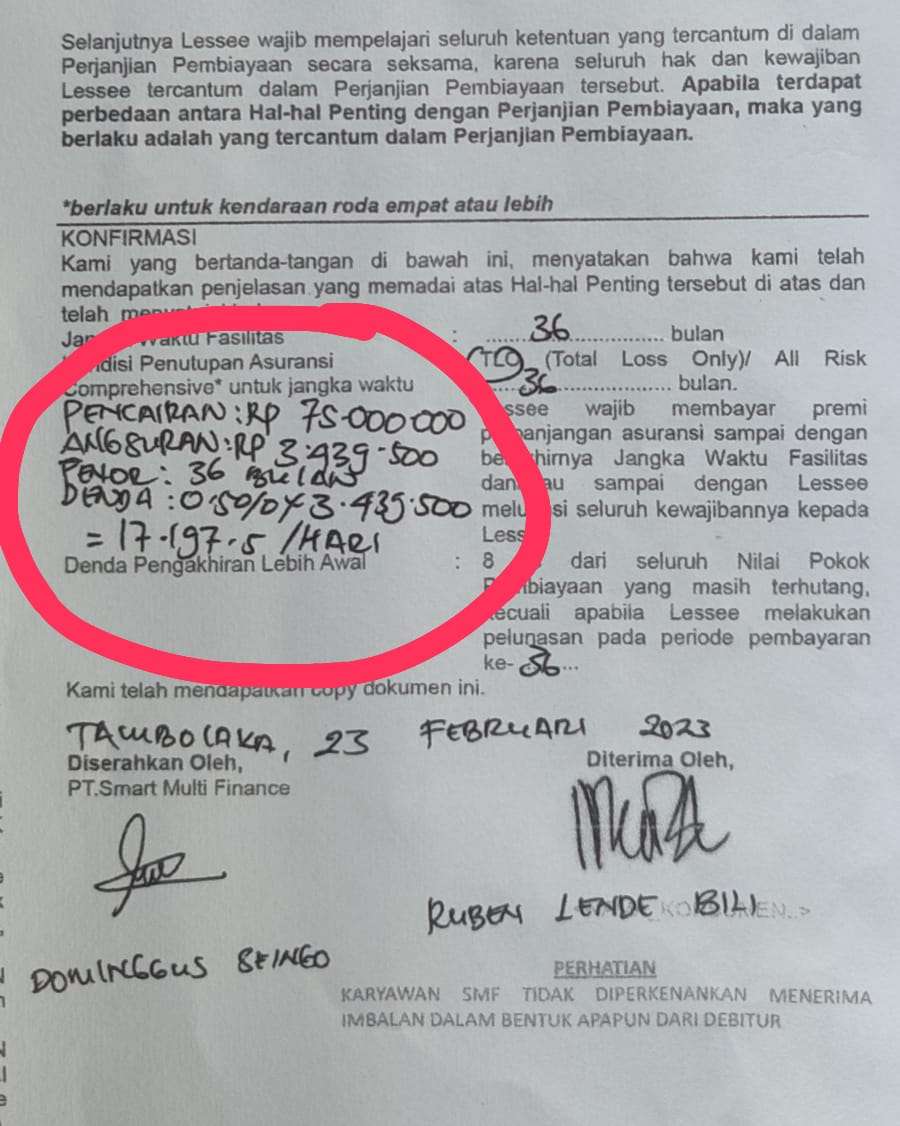 Selanjutnya Lessee wajib mempelajari seluruh ketentuan yang tercantum di dalam
Perjanjian Pembiayaan secara seksama, karena seluruh hak dan kewajiban
Lessee tercantum dalam Perjanjian Pembiayaan tersebut. Apabila terdapat
perbedaan antara Hal-hal Penting dengan Perjanjian Pembiayaan, maka yang
berlaku adalah yang tercantum dalam Perjanjian Pembiayaan.
*berlaku untuk kendaraan roda empat atau lebih
KONFIRMASI
Kami yang bertanda-tangan di bawah ini, menyatakan bahwa kami telah
mendapatkan penjelasan yang memadai atas Hal-hal Penting tersebut di atas dan
telah
Waktu Fasilitas : ........36................ bulan
Penutupan Asuransi
Comprehensive* untuk jangka waktu
TLO (Total Loss Only)/ All Risk
.....36.................. bulan.
PENCAIRAN : RP 75.000.000
ANGSURAN : RP 3.439.500
TENOR : 36 BULAN
DENDA : 0.50% x 3.439.500
= 17.197.5 /HARI
wajib membayar premi
asuransi sampai dengan
Jangka Waktu Fasilitas
sampai dengan Lessee
seluruh kewajibannya kepada
Denda Pengakhiran Lebih Awal : 8 dari seluruh Nilai Pokok
yang masih terhutang,
kecuali apabila Lessee melakukan
pelunasan pada periode pembayaran
ke- 36...
Kami telah mendapatkan copy dokumen ini.
TAMBOLAKA, 23 FEBRUARI 2023
Diserahkan Oleh, Diterima Oleh,
PT.Smart Multi Finance
RUBEN LENDE BILI
DOMINGGUS BEINGO
PERHATIAN
KARYAWAN SMF TIDAK DIPERKENANKAN MENERIMA
IMBALAN DALAM BENTUK APAPUN DARI DEBITUR